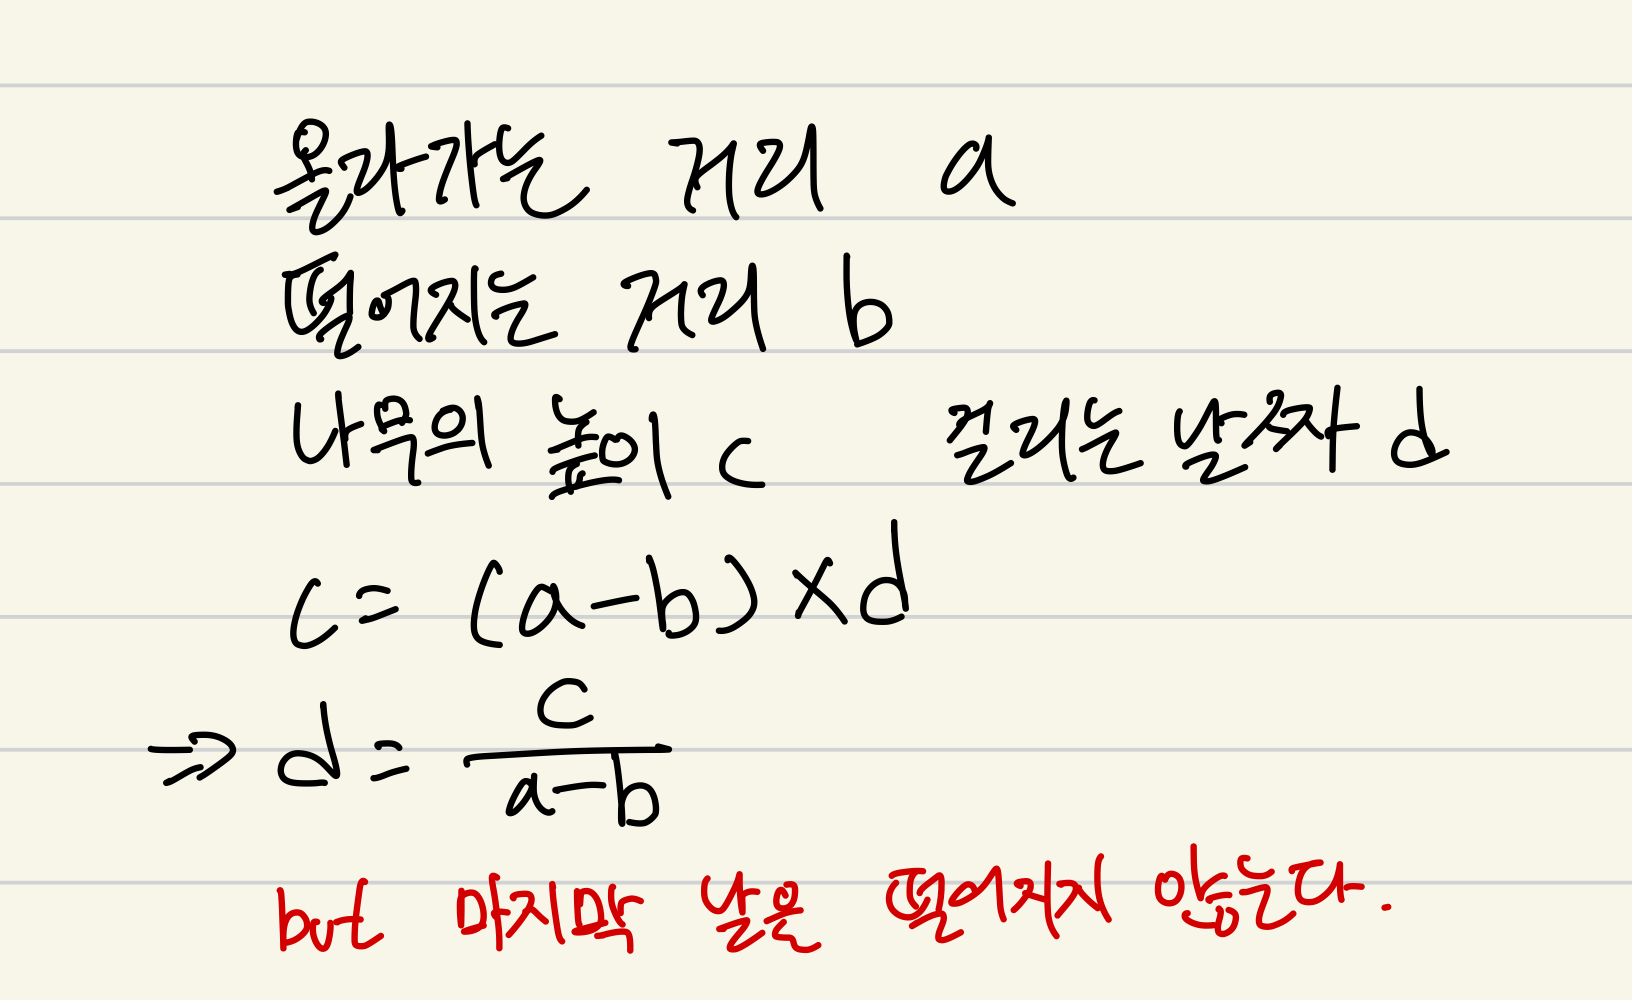 올라가는 거리 a
떨어지는 거리 b
나무의 높이 c 걸리는 날짜 d
c = (a-b) × d
⇒ d = c / a-b
but 마지막 날은 떨어지지 않는다.